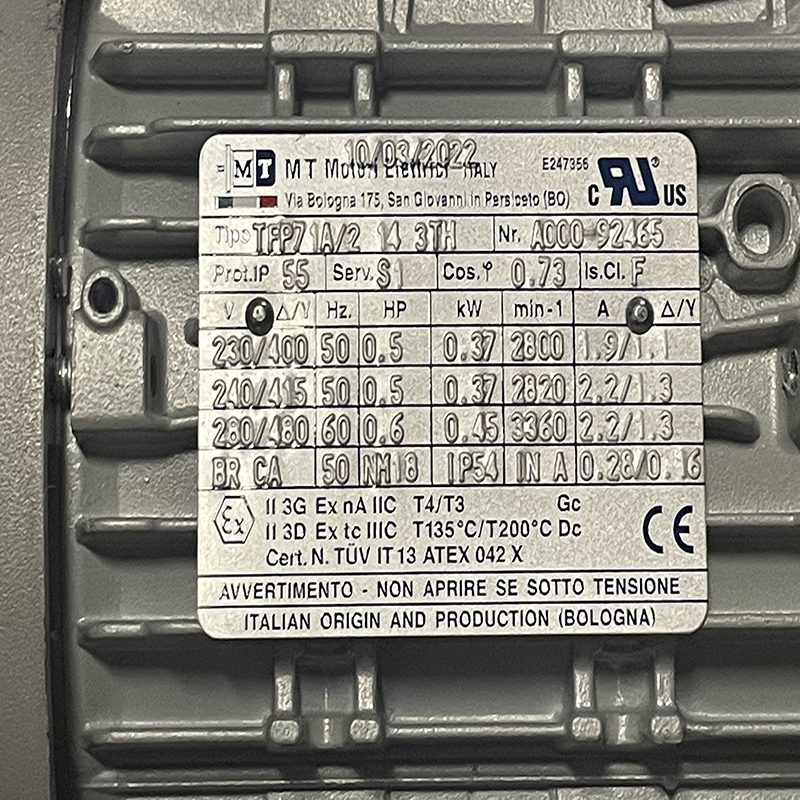 10/03/2022
MT MT Motori Elettrici ITALY E247356
Via Bologna 175, San Giovanni in Persiceto (BO) C RU ® US
Tipo TFP71A/2 14 3TH Nr. A000 92465
Prot.IP 55 Serv. S1 Cos.φ 0.73 Is.Cl. F
V Δ/Y Hz. HP kW min-1 A Δ/Y
230/400 50 0.5 0.37 2800 1.9/1.1
240/415 50 0.5 0.37 2820 2.2/1.3
280/480 60 0.6 0.45 3360 2.2/1.3
BR CA 50 NM18 IP54 IN A 0.28/0.16
Ex II 3G Ex nA IIC T4/T3 Gc
II 3D Ex tc IIIC T135°C/T200°C Dc CE
Cert. N. TÜV IT 13 ATEX 042 X
AVVERTIMENTO - NON APRIRE SE SOTTO TENSIONE
ITALIAN ORIGIN AND PRODUCTION (BOLOGNA)